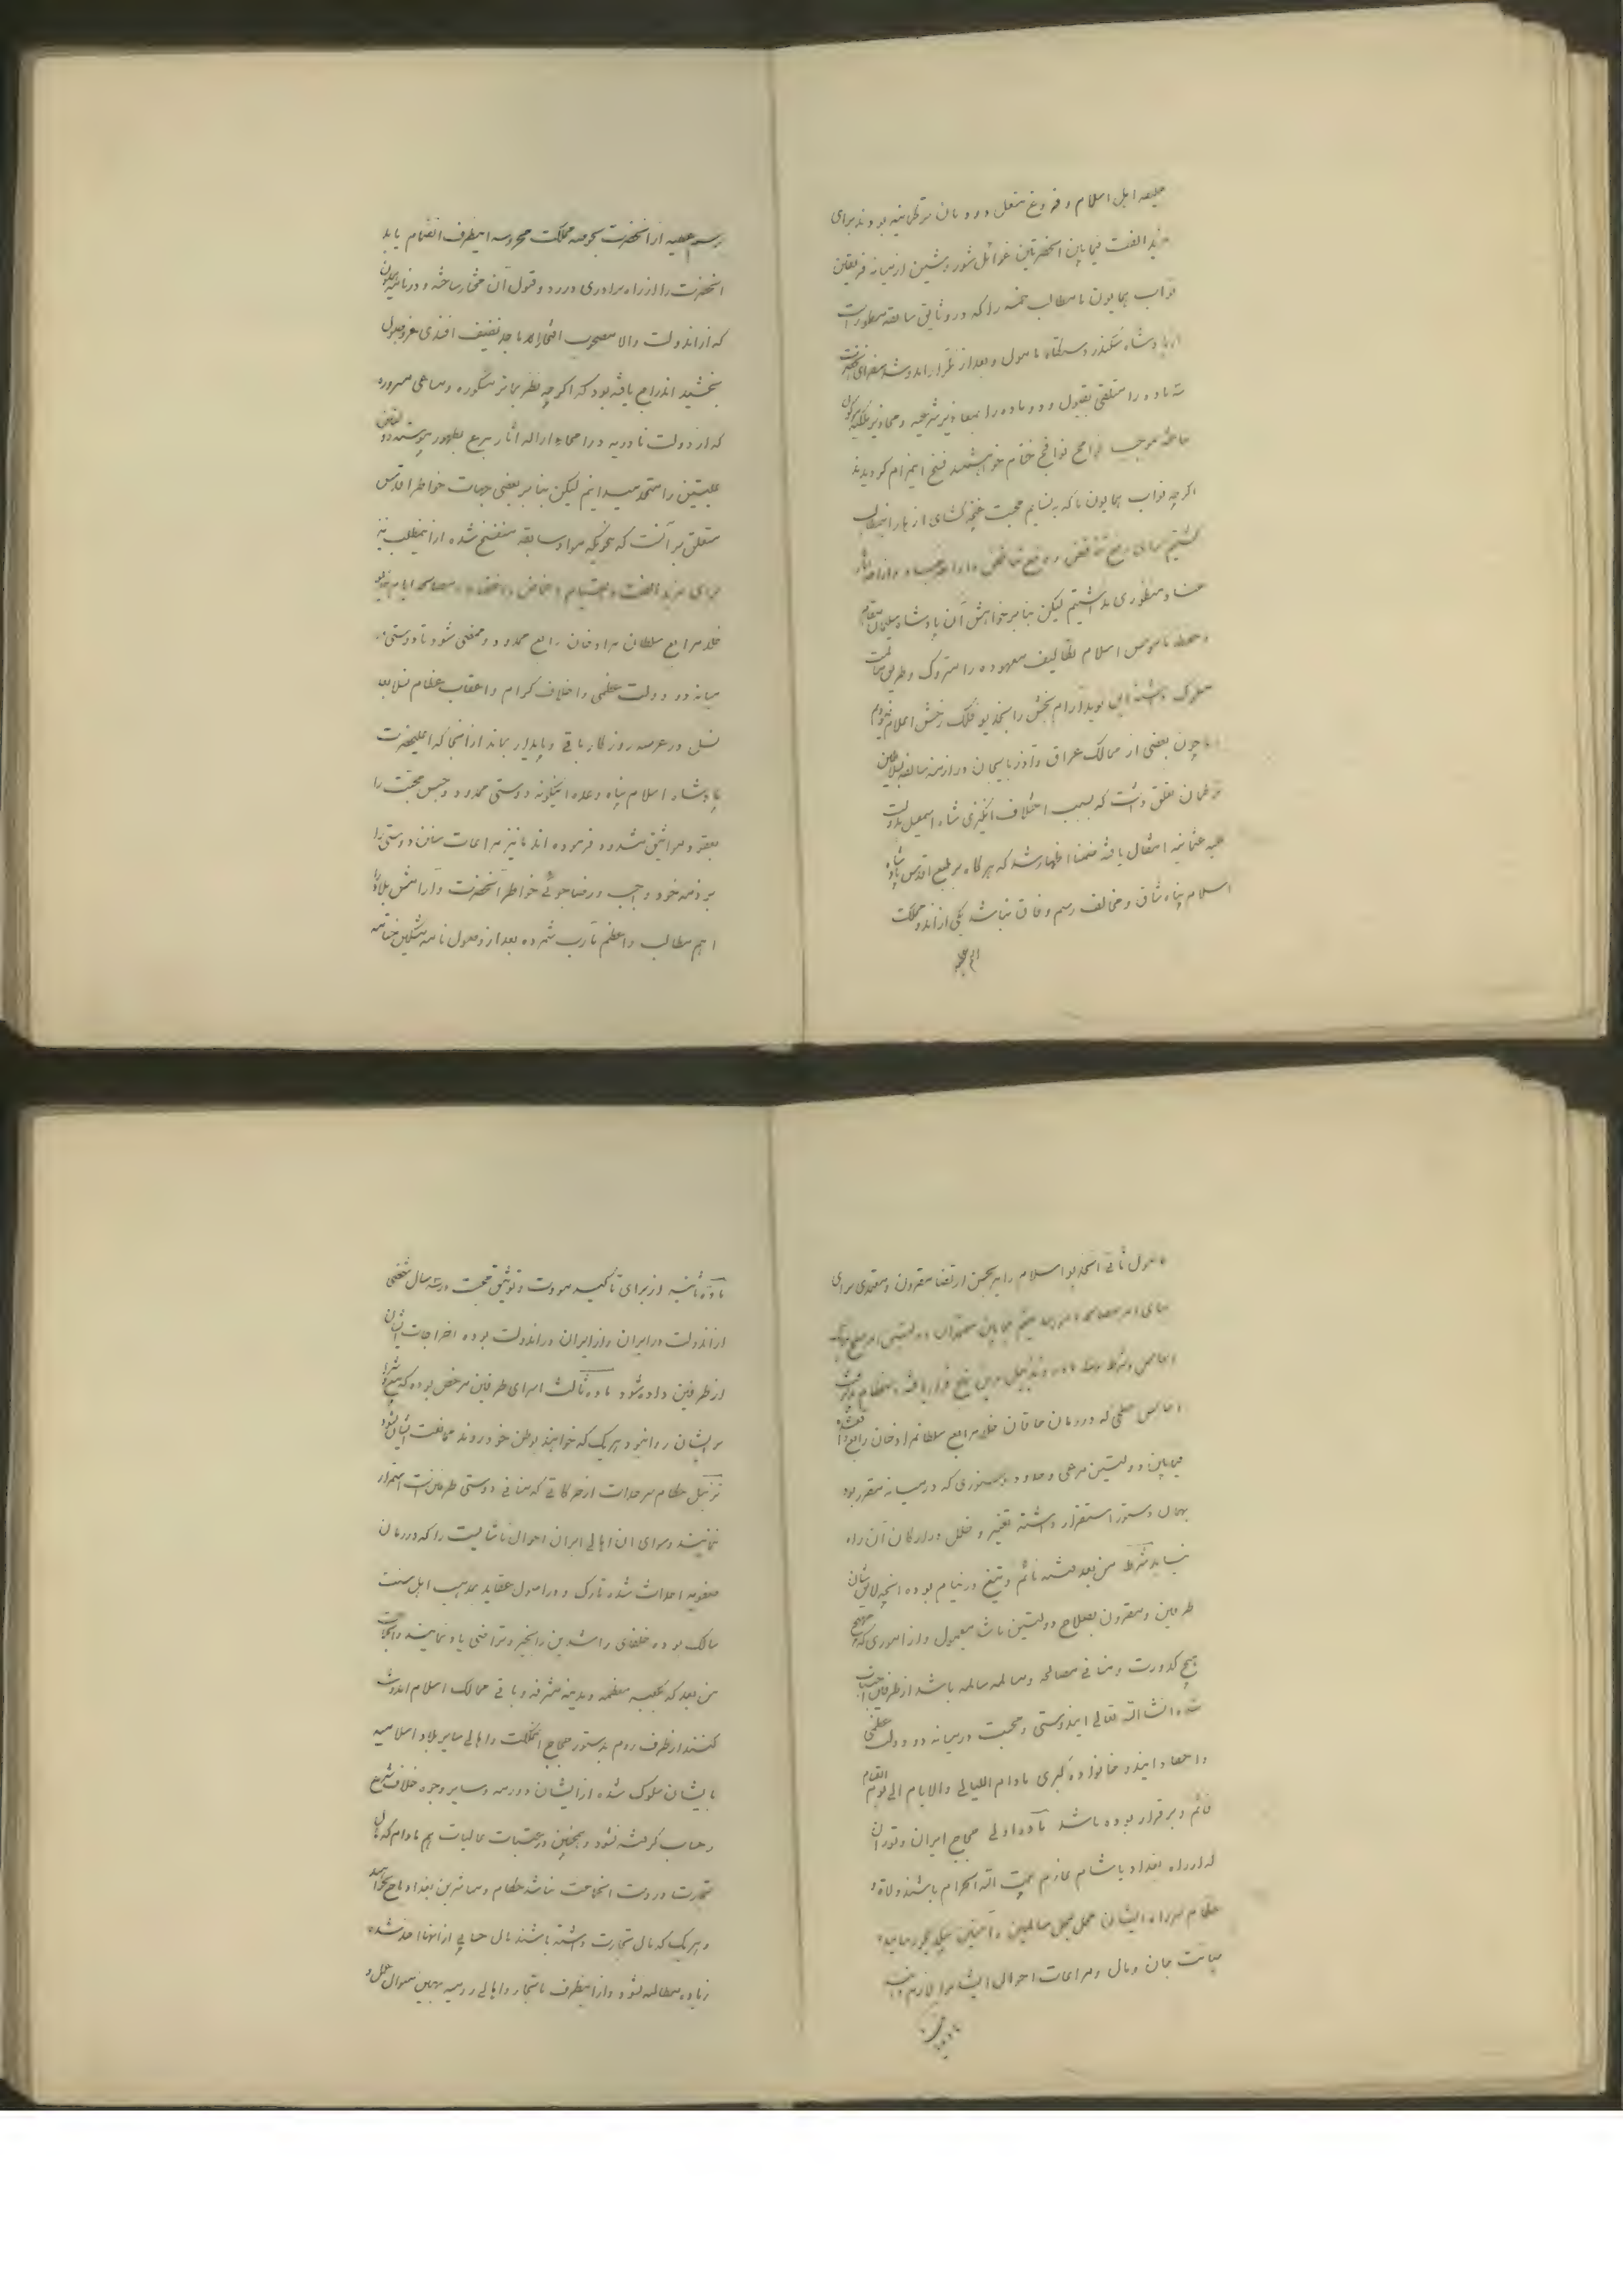 خلیفه اهل اسلام و فروغ مشعل دودمان ترکمانیه بودند برای
مزید الفت فیمابین اعلیحضرتین غوائل شور و شین از میانه فریقین
نواب همایون ما مطالب خمسه را که در وثایق سابقه مسطور است
از پادشاه سکندر دستگاه مأمول و بعد از تکرار آمد و شد سفرای
سه ماده را متلقی بقبول و دو ماده را بمعاذیر شرعیه و محاذیر ملکیه موکول
خاتمه موجب فسخ این مرام گردیدند
اگرچه نواب همایون ما که به نسایم محبت غنچه گشای ازهار اینمطالب
گشتیم برای رفع تناقض و دفع تباغض
عناد منظوری نداشتیم لیکن بنا بر خواهش آن پادشاه سلیمان مقام
و حفظ ناموس اسلام تکالیف معهوده را متروک و طریق مسالمت
مسلوک داشته این نوید آرام بخش را بخدیو فلک رخش اعلام نمودیم
و چون بعضی از ممالک عراق و آذربایجان در ازمنه سابقه بسلاطین
ترکمان تعلق داشت که بسبب اختلاف انگیزی شاه اسمعیل بدولت
علیه عثمانیه انتقال یافته ضمنا اظهار شد که هر گاه بر طبع اقدس پادشاه
اسلام پناه شاق و مخالف رسم وفاق نباشد یکی از اندو مملکت
برسم عطیه از آنحضرت بحوزه مملکت محروسه اینطرف انضمام یابد
آنحضرت را از راه برادری در رد و قبول آن مختار ساخته و در نامه همایون
که از اندولت والا مصحوب افتخار الاماجد نظیف افندی عز وصول
بخشید اندراج یافته بود که اگرچه نظر بمآثر مشکوره و مساعی مبروره
که از دولت نادریه در امحاء و ازاله آثار بدع بظهور پیوسته دو
علیتین را متحد میدانیم لیکن بنا بر بعضی جهات خواطر اقدس
متعلق بر آنست که بنحویکه مواد سابقه منفسخ شده از اینمطلب نیز
برای مزید الفت و التیام اغماض و مصالحه ایام
خلد مرابع سلطان مراد خان رابع ممدود و ممضی شود تا دوستی
میانه دو دولت عظمی و اخلاف کرام و اعقاب عظام نسلا بعد
نسل در عرصه روزگار باقی و پایدار بماند از آنجا که اعلیحضرت
پادشاه اسلام پناه وعده اینگونه دوستی ممدود و حبس محبت را
بعقد و مواثیق مشدود فرموده اند ما نیز مراعات سنن دوستی را
بر ذمه خود واجب و رضاجوئی خواطر آنحضرت و آرامش بلاد را
اهم مطالب و اعظم مآرب شمرده بعد از وصول نامه مشکین ختامه
مأمول ثانی آنخدیو اسلام را نیز بحسن ارتضا مقرون و معتمدی برای
بنای امر مصالحه مأمور
اساس و شرط و ماده و تذییل بدین نهج قرار یافته
اساس صلحی که در زمان خاقان خلد مرابع سلطانمراد خان رابع
فیمابین دولتین مرعی و حدود و سنوری که در میانه مقرر بود
بهمان دستور استقرار داشته تغییر و خلل در ارکان آن راه
نیابد شرط من بعد فتنه نائم و تیغ در نیام بوده آنچه لایق شان
طرفین و مقرون بصلاح دولتین باشد معمول و از اموری که
مهیج کدورت و منافی مصالحه و مسالمه باشد از طرفین اجتناب
شود انشاالله تعالی ایندوستی و محبت در میانه دو دولت عظمی
و احفاد ایندو خانواده کبری مادام اللیالی والایام الی یوم القیام
قائم و برقرار بوده باشد ماده اولی حجاج ایران و توران
که از راه بغداد یا شام عازم بیت الله الحرام باشند ولات و
حکام سر راه ایشانرا محل بمحل سالمین و آمنین بیکدیگر رسانیده
صیانت جان و مال و مراعات احوال ایشانرا لازم دانند
ماده ثانیه از برای تأکید مودت و توثیق محبت در سه سال شخصی
از آندولت در ایران و از ایران در آندولت بوده اخراجات ایشان
از طرفین داده شود ماده ثالث اسرای طرفین مرخص بوده که بیع و شرا
بر ایشان روا نبوده هر یک که خواهند بوطن خود روند ممانعت ایشان نشود
تذییل حکام سرحدات از حرکاتی که منافی دوستی طرفین است احتراز
نمایند و سوای آن اهالی ایران احوال ناشایست را که در زمان
صفویه احداث شده تارک و در اصول عقاید بمذهب اهل سنت
سالک بوده خلفای راشدین را بخیر و ترضی یاد نمایند
من بعد که بکعبه معظمه و مدینه مشرفه و باقی ممالک اسلام آمد و شد
کنند از طرف روم بدستور حجاج آنمملکت و اهالی سایر بلاد اسلامیه
با ایشان سلوک شده از ایشان دورمه و سایر وجوه خلاف شرع
و حساب گرفته نشود و همچنین در عتبات عالیات هم مادام که مال
تجارت در دست آنجماعت نباشد حکام و مباشرین بغداد باج نخواهند
و هر یک که مال تجارت داشته باشند مال حسابی از آنها اخذ شده
زیاده مطالبه نشود و از اینطرف با تجار و اهالی رومیه بهمین منوال عمل و